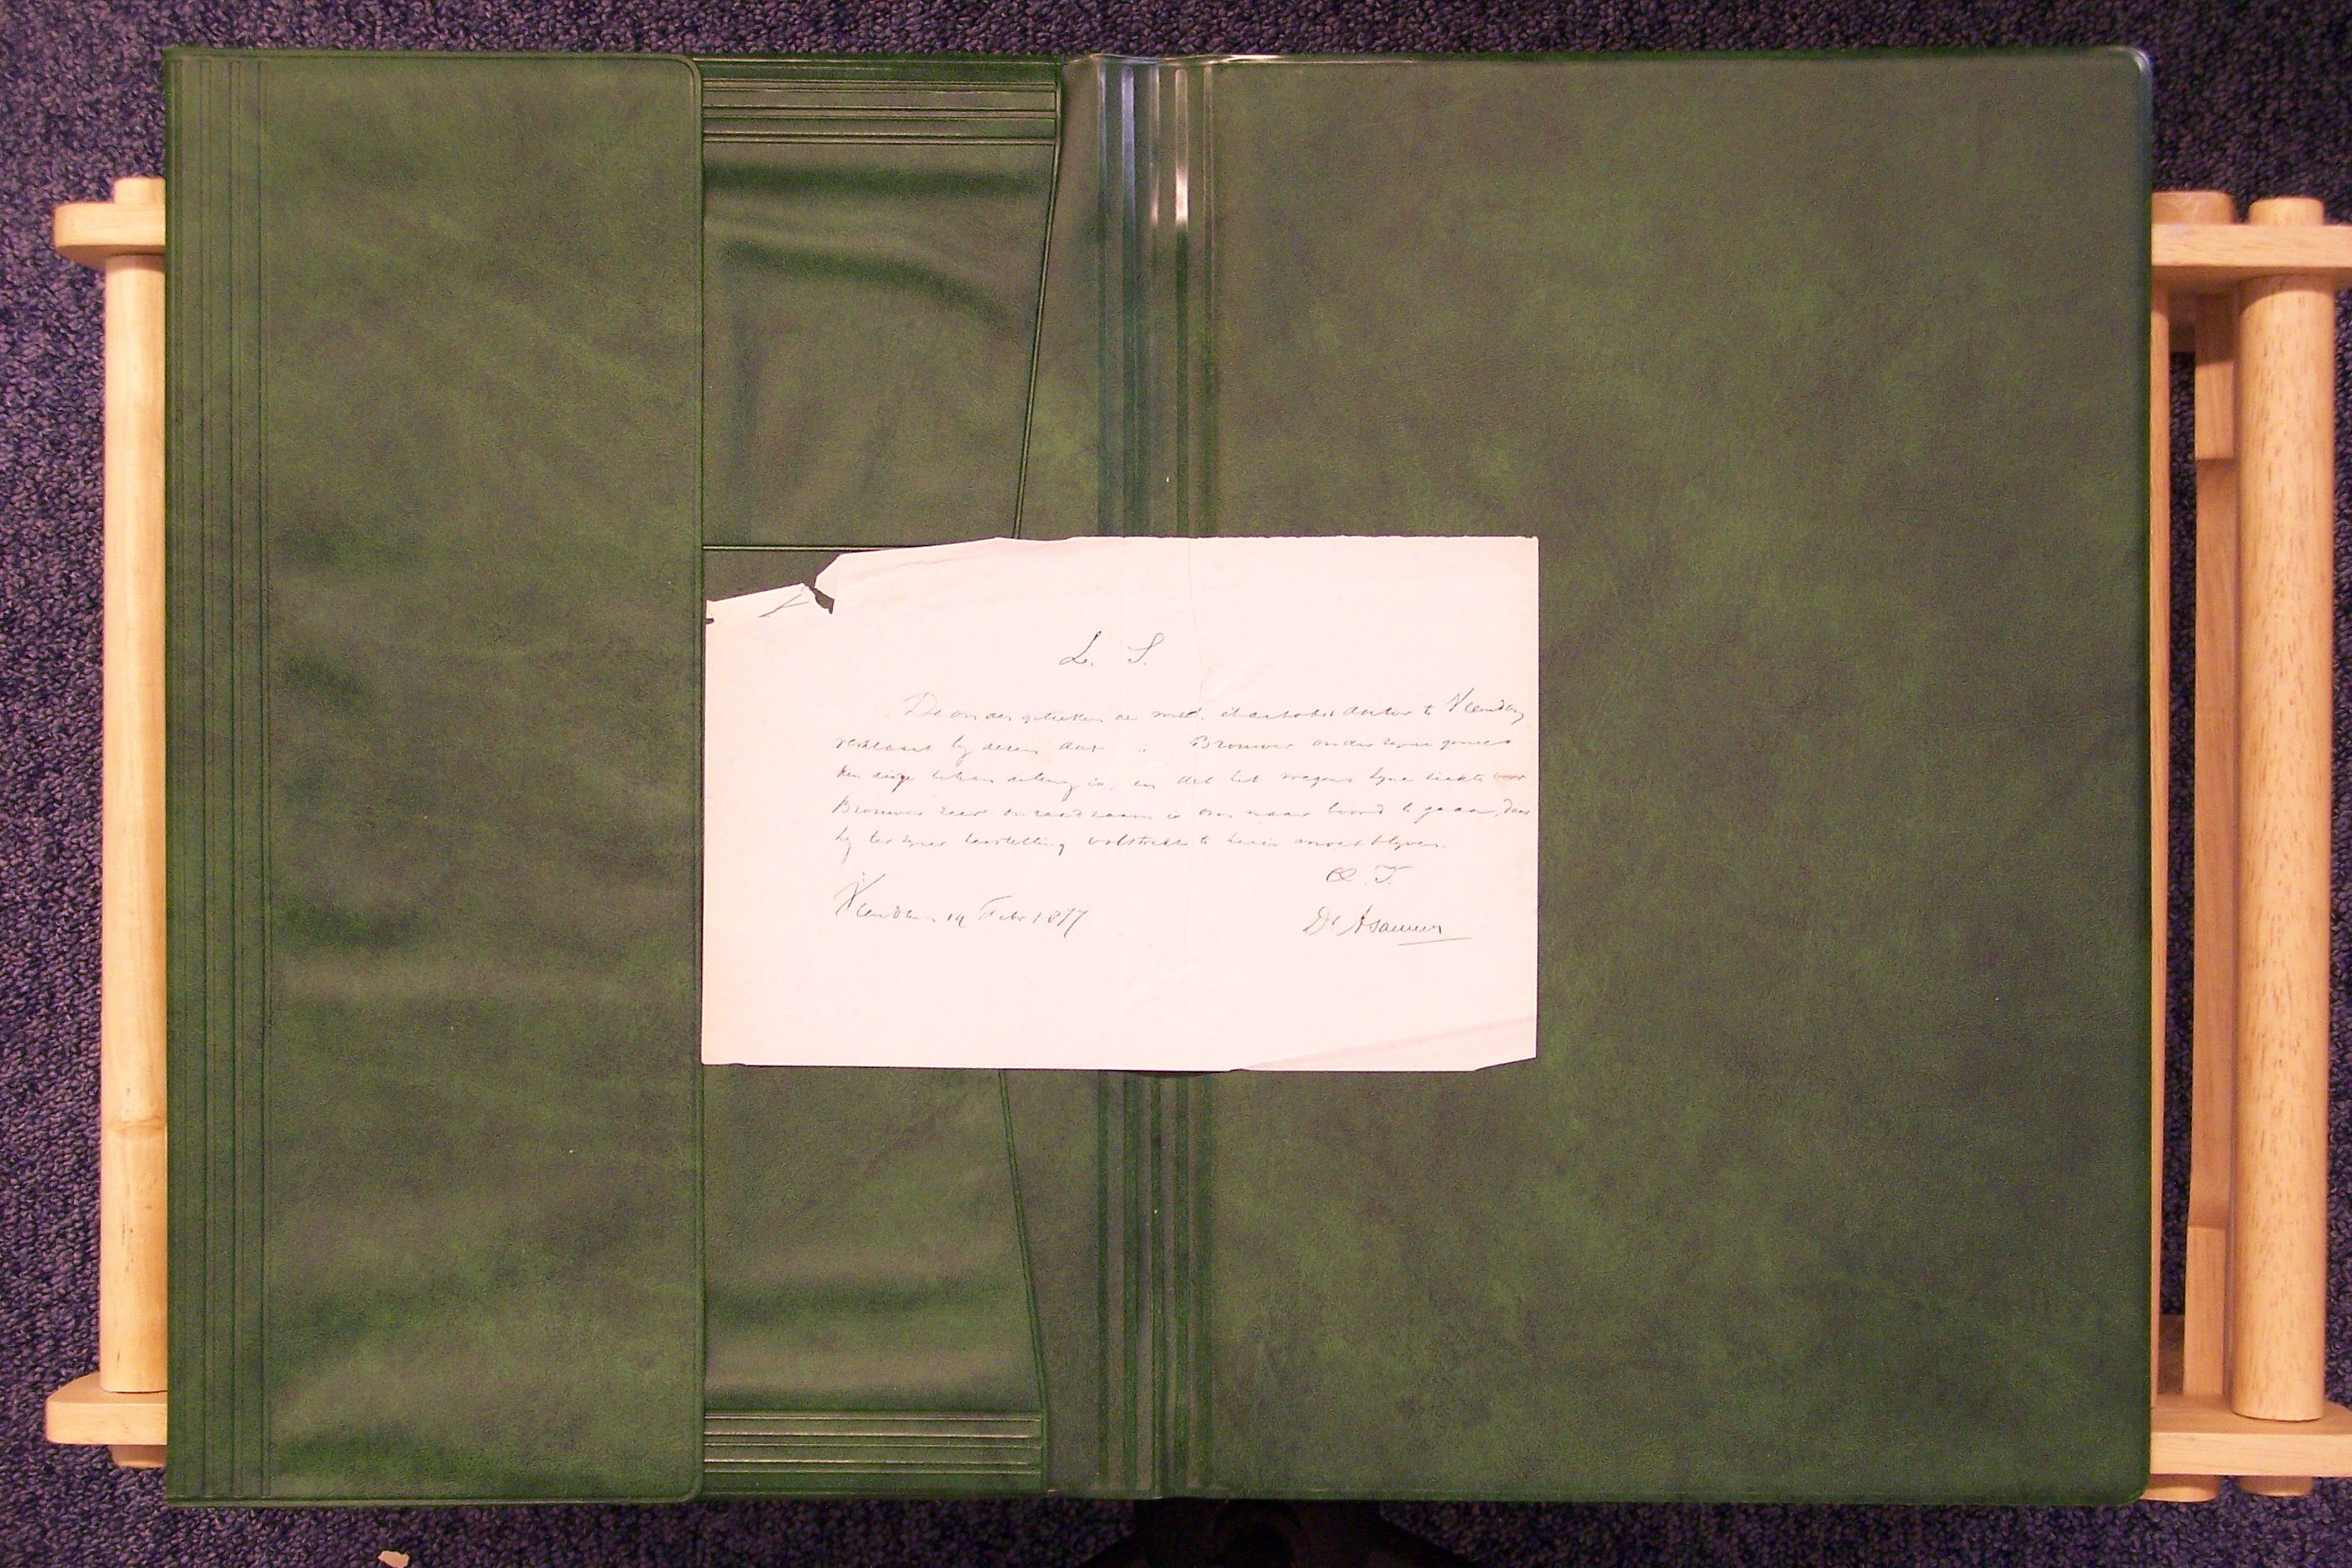 L. S.
De ondergeteekende med. doctor te Veendam
verklaart bij dezen dat " Brouwer onder zijne genees
kundige behandeling is, en dat het wegens zijne ziekte voor
Brouwer zeer onraadzaam is om naar boord te gaan, daar
hij ter zijner herstelling volstrekt te huis moet blijven.
Q. T.
Veendam 19 Febr 1877
Dr